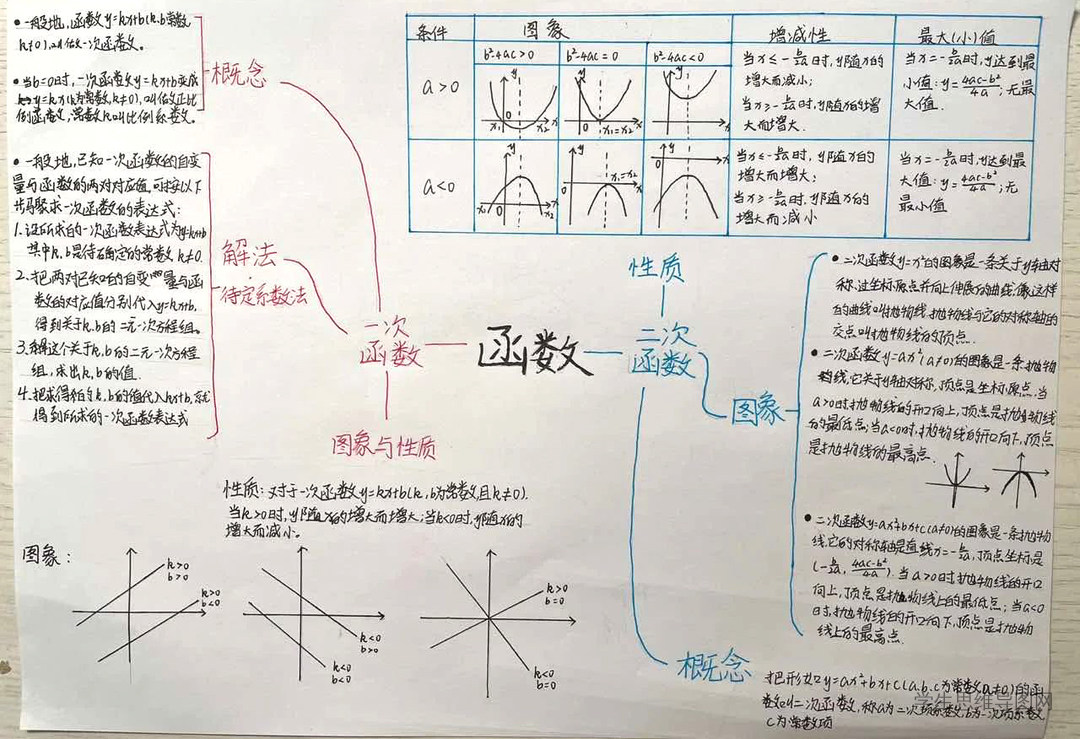 函数
一次
函数
概念
• 一般地,函数y=kx+b(k.b常数
k≠0),叫做一次函数。
• 当b=0时,一次函数y=kx+b变成
y=kx(k为常数,k≠0),叫做正比
例函数,常数k叫比例系数。
解法
待定系数法
• 一般地,已知一次函数的自变
量与函数的两对对应值,可按以下
步骤求一次函数的表达式:
1.设所求的一次函数表达式为y=kx+b
其中k.b是待确定的常数,k≠0.
2.把两对已知的自变量与函
数的对应值分别代入y=kx+b,
得到关于k.b的二元一次方程组。
3.解这个关于k,b的二元一次方程
组,求出k,b的值.
4.把求得的k.b的值代入kx+b,就
得到所求的一次函数表达式
图象与性质
性质:对于一次函数y=kx+b(k,b为常数,且k≠0).
当k>0时,y随x的增大而增大;当k<0时,y随x的
增大而减小。
图象:
k>0
b>0
k>0
b<0
k<0
b>0
k<0
b<0
k>0
b=0
k<0
b=0
二次
函数
性质
条件 图象 增减性 最大(小)值
b²-4ac>0 b²-4ac=0 b²-4ac<0
a>0
y
x₁ 0 x₂ x
y
0 x₁=x₂ x
y
0 x
当x≤-b/2a时,y随x的
增大而减小;
当x≥-b/2a时,y随x的增
大而增大.
当x=-b/2a时,y达到最
小值:y=4ac-b²/4a;无最
大值.
a<0
y
x₁ 0 x₂ x
y
0 x₁=x₂ x
y
0 x
当x≤-b/2a时,y随x的
增大而增大;
当x≥-b/2a时,y随x的
增大而减小
当x=-b/2a时,y达到最
大值:y=4ac-b²/4a;无
最小值
图象
• 二次函数y=x²的图象是一条关于y轴对
称,过坐标原点并向上伸展的曲线,像这样
的曲线叫抛物线,抛物线与它的对称轴的
交点叫抛物线的顶点.
• 二次函数y=ax²(a≠0)的图象是一条抛物
线,它关于y轴对称,顶点是坐标原点.当
a>0时抛物线的开口向上,顶点是抛物线
的最低点;当a<0时,抛物线的开口向下,顶点
是抛物线的最高点.
• 二次函数y=ax²+bx+c(a≠0)的图象是一条抛物
线,它的对称轴是直线x=-b/2a,顶点坐标是
(-b/2a,4ac-b²/4a).当a>0时抛物线的开口
向上,顶点是抛物线上的最低点;当a<0
时,抛物线的开口向下,顶点是抛物
线上的最高点.
概念
把形如y=ax²+bx+c(a.b.c为常数,a≠0)的函
数叫二次函数,称a为二次项系数,b为一次项系数,
c为常数项
学生思维导图网